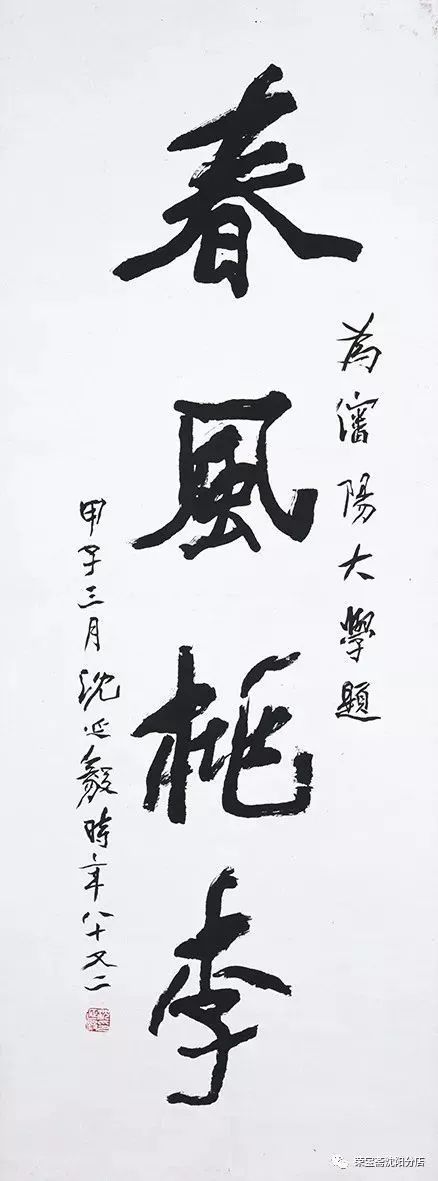 為瀋陽大學題
春風桃李
甲子三月沈延毅時年八十又二
荣宝斋沈阳分店